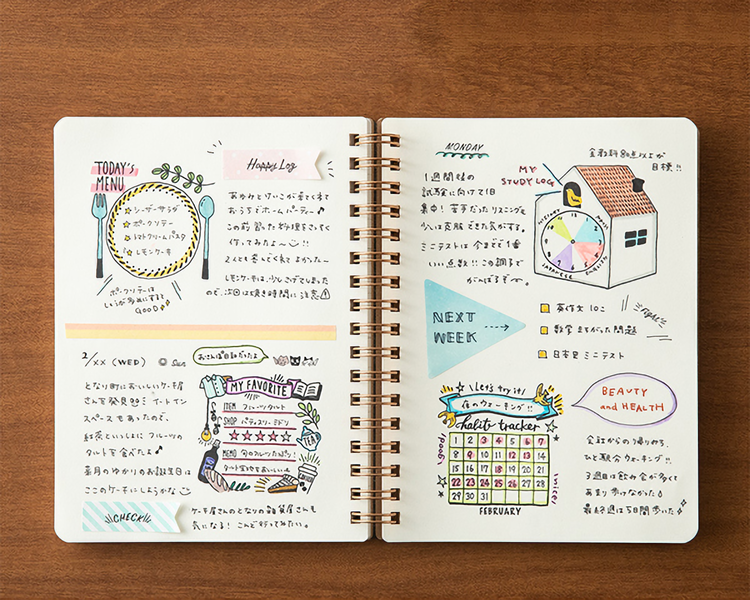 TODAY's
MENU
シーザーサラダ
ポークソテー
トマトクリームパスタ
レモンケーキ
ポークソテーは
しょうが多めにすると
GOOD
Happy Log
あゆみとけいこが来てくれて
おうちでホームパーティー♪
この前習った料理をさっそく
作ってみたよ〜!!
2人とも喜んでくれてよかった〜
レモンケーキは、少しこげてしまったの
で、次回は焼き時間に注意
2/XX (WED)
Sun
おさんぽ日和だったよ
となり町においしいケーキ屋
さんを発見 イートイン
スペースもあったので、
紅茶といっしょに フルーツの
タルトを食べたよ♪
来月のゆかりのお誕生日は
ここのケーキにしようかな
MY FAVORITE
ITEM フルーツタルト
SHOP パティスリーミドリ
★★★★☆
MEMO 旬のフルーツたっぷり!
タルト生地もおいしい
TEA
CHECK!
ケーキ屋さんのとなりの雑貨屋さんも
気になる! こんど行ってみたい。
MONDAY
1週間後の
試験に向けて1日
集中! 苦手だったリスニングも
少しは克服できた気がする。
ミニテストは今までで1番
いい点数!!この調子で
がんばるぞ〜。
MY
STUDY LOG
全教科80点以上が
目標!!
HISTORY
MATH
JAPANESE
ENGLISH
NEXT
WEEK
英作文 10こ
数学 まちがった問題
日本史 ミニテスト
Fight!!
Let's try it!
夜のウォーキング!!
habit tracker
good!
nice!
1 2 3 4 5 6 7
8 9 10 11 12 13 14
15 16 17 18 19 20 21
22 23 24 25 26 27 28
29 30 31
FEBRUARY
BEAUTY
and HEALTH
会社からの帰り道、
ひと駅分ウォーキング!!
3週目は飲み会が多くて
あまり歩けなかった
最終週は5日間歩いた